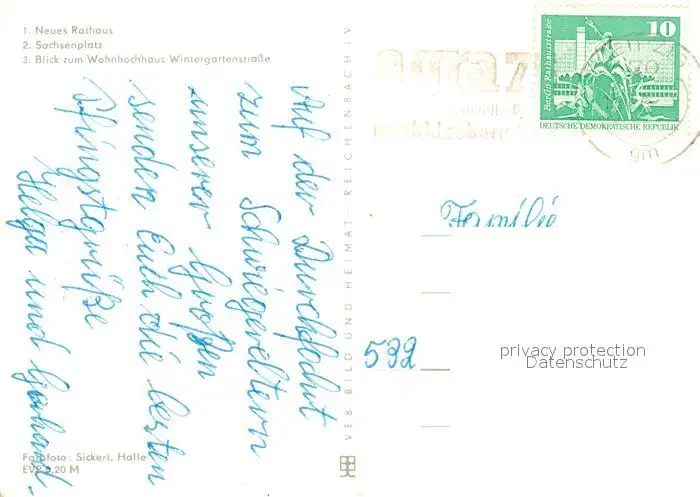 1. Neues Rathaus
2. Sachsenplatz
3. Blick zum Wohnhochhaus Wintergartenstraße
Auf der Durchfahrt
zum Schwiegereltern
unserer Großen
senden Euch die besten
Pfingstgrüße
Helga und Gerhard.
Farbfoto: Sickert, Halle
EVP 0,20 M
VEB BILD UND HEIMAT REICHENBACH i V
10
Berlin-Rathausstraße
DEUTSCHE DEMOKRATISCHE REPUBLIK
Familie
532
privacy protection
Datenschutz